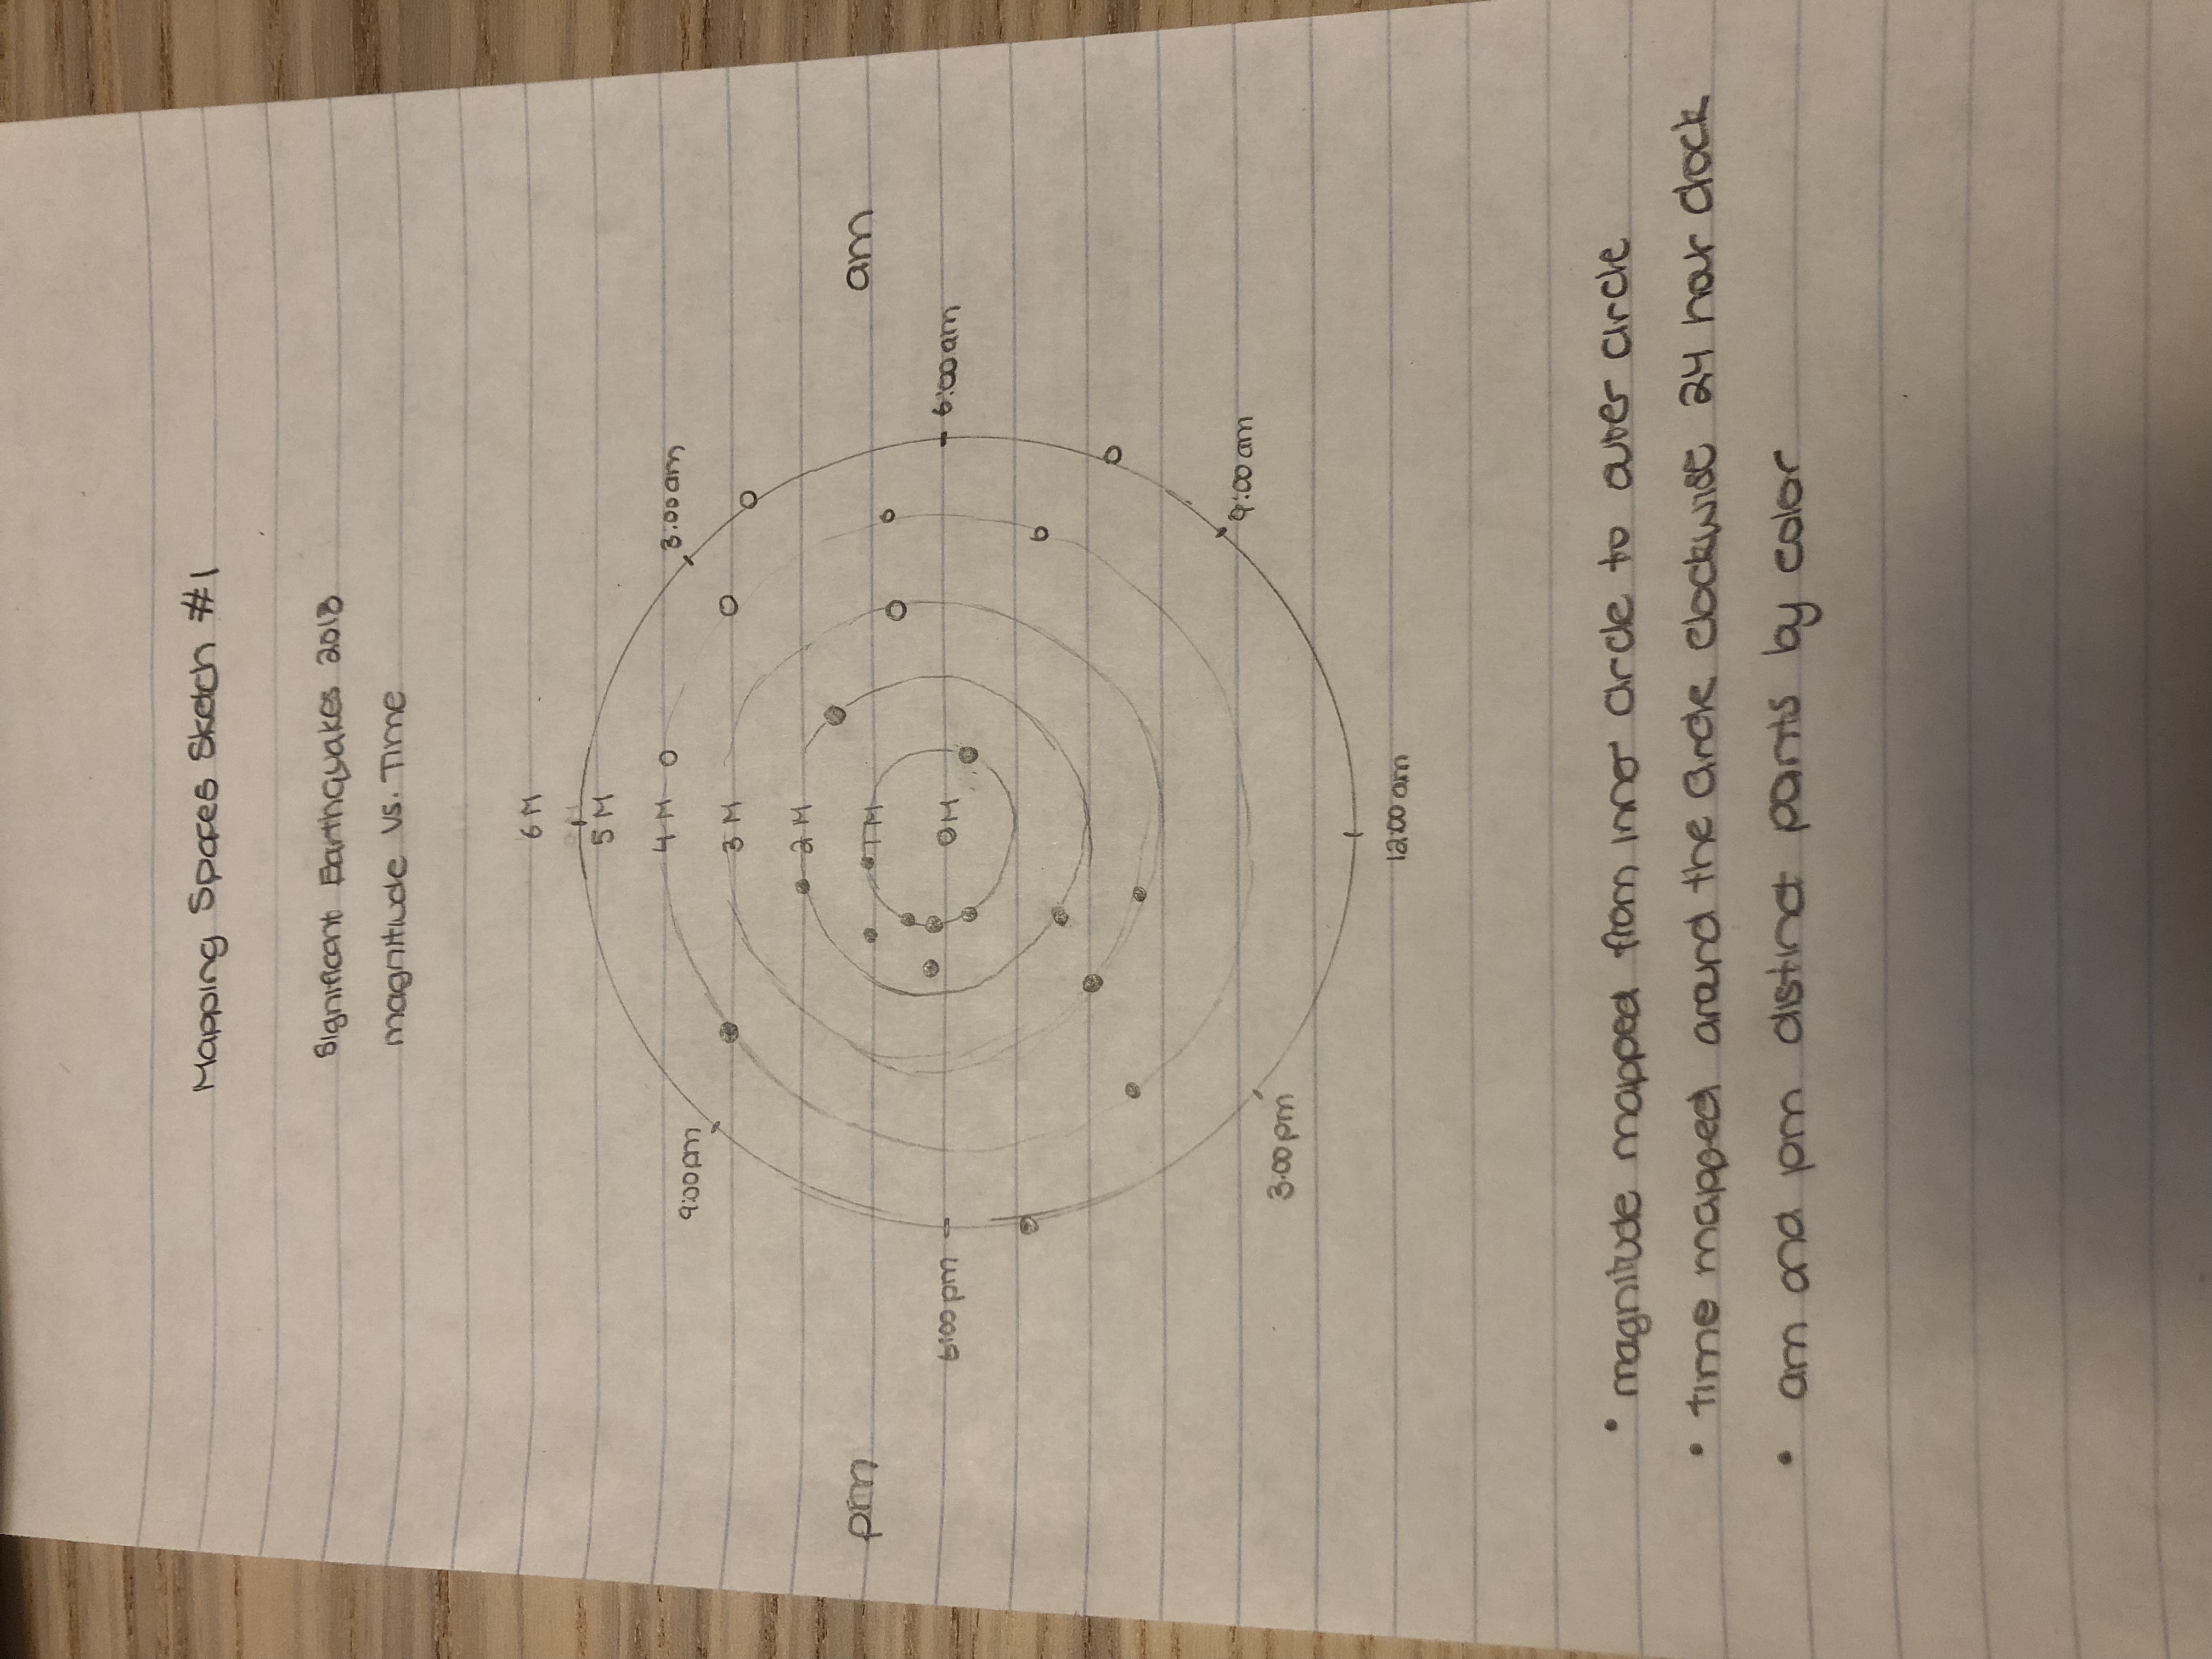 Mapping Spaces Sketch #1
Significant Earthquakes 2018
magnitude vs. Time
6 M
5 M
4 M
3:00 am
9:00 pm
3 M
2 M
pm
am
1 M
6:00 pm
0 M
6:00 am
9:00 am
3:00 pm
12:00 am
• magnitude mapped from inner circle to outer circle
• time mapped around the circle clockwise 24 hour clock
• am and pm distinct points by color